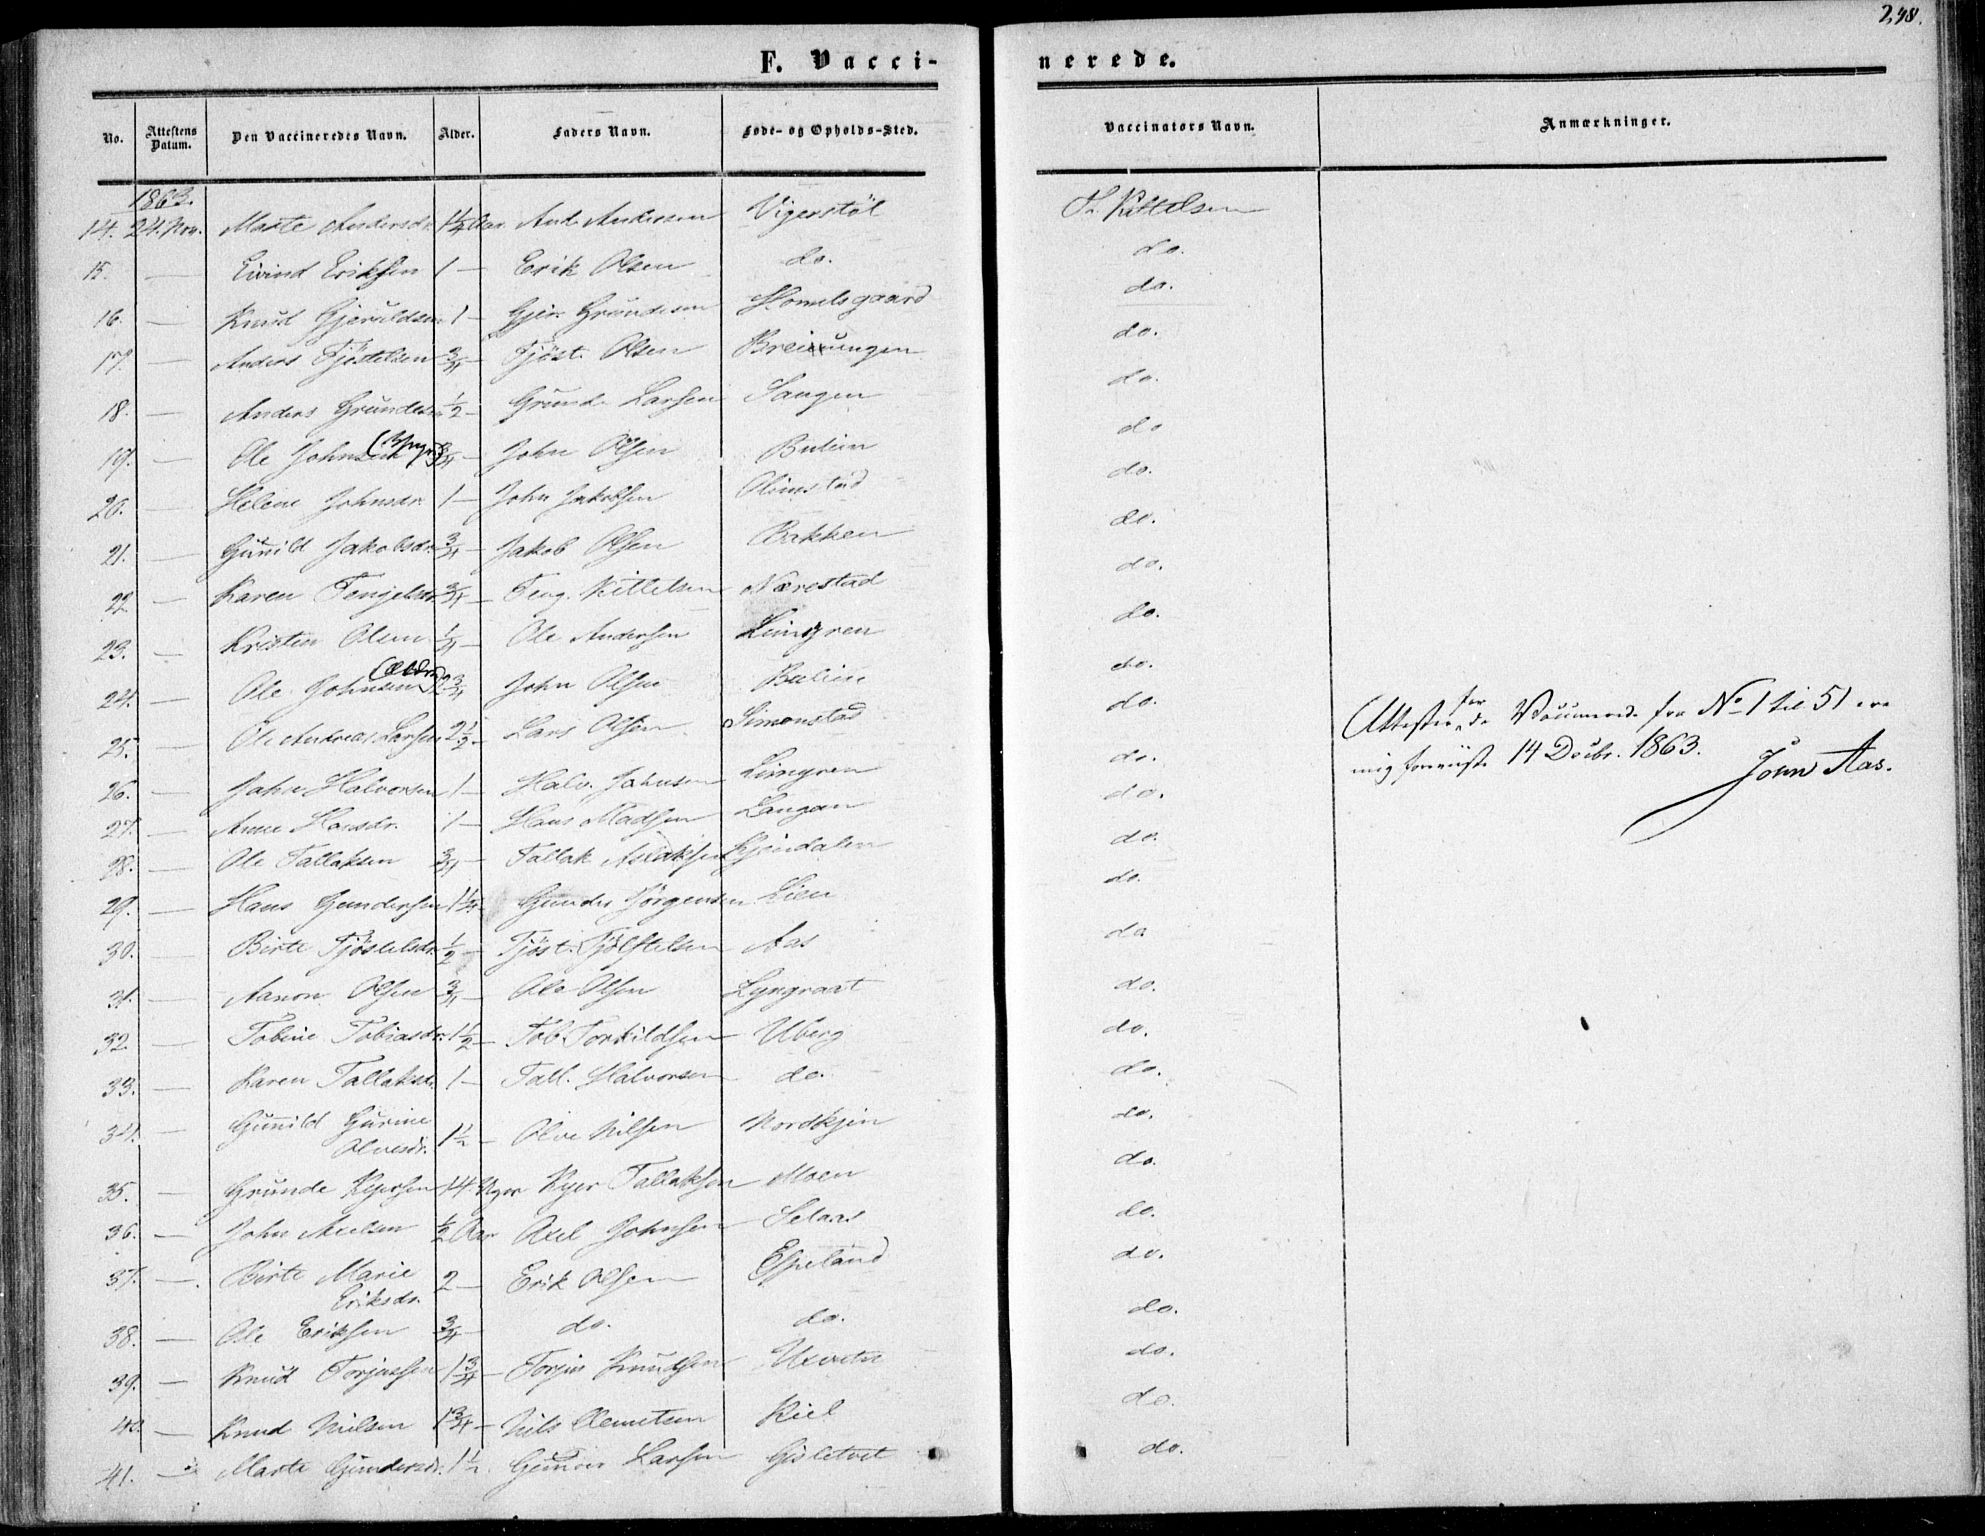 248.
F. Vaccinerede.
No. Attestens Datum. Den Vaccineredes Navn. Alder. Faders Navn. Føde- og Opholds-Sted. Vaccinators Navn. Anmærkninger.
1863.
14. 24. Nov. Marte Andersdr. 1½ Aar And. Andersen Vigerstøl Th. Kittelsen
15. — Eivind Eriksen 1 — Erik Olsen do. do.
16. — Knud Gjeruldsen 1 — Gjer. Grundesen Homelsgaard do.
17. — Anders Tjøstelsen ¾ — Tjöst. Olsen Breiungen do.
18. — Anders Grundesen ½ — Grunde Larsen Saugen do.
19. — Ole Johnsen (Yngre) ¾ — John Olsen Bulien do
20. — Helene Johnsdr. 1 — John Jakobsen Olimstad do.
21. — Gunild Jakobsdr. ¾ — Jakob Olsen Bakken do.
22. — Karen Tengelsdr. ¾ — Teng. Kittelsen Nærestad do.
23. — Kristen Olsen ¼ — Ole Andersen Limgren do.
24. — Ole Johnsen (Ældre) 2¾ John Olsen Bulien do.
25. — Ole Andreas Larsen 2½ — Lars Olsen Simonstad do.
26. — John Halvorsen 1 — Halv. Johnsen Limgren do.
27. — Anne Hansdr. 1 — Hans Madsen Langan do.
28. — Ole Tallaksen ¾ — Tallak Aslaksen Kjendalen do.
29. — Hans Gundersen 1¼ — Gunder Jørgensen Lien do.
30. — Birte Tjöstelsdr. ½ — Tjöst. Tjöstelsen Aas do
31. — Aanon Olsen ¾ — Ole Olsen Lyngraat do.
32. — Tobine Tobiasdr. 1½ — Tob. Torkildsen Uberg do.
33. — Karen Tallaksdr. 1 — Tall. Halvorsen do. do.
34. — Gunild Gurine Olvesdr. 1½ — Olve Nilsen Nordkjen do.
35. — Grunde Kyersen 14 Uger Kyer Tallaksen Moen do.
36. — John Axelsen ½ Aar Axel Johnsen Selaas do.
37. — Birte Marie Eriksdr. 2 — Erik Olsen Espeland do.
38. — Ole Eriksen ¾ — do. do. do.
39. — Knud Torjussen 1¾ — Torjus Knudsen Uxvatn do.
40. — Knud Nilsen 1¾ — Nils Clemetsen Kiel do.
41. — Marte Gundersdr. 1½ Gunder Larsen Gisletvet do.
Attester for de Vaccinerede fra No 1 til 51 ere
mig foreviiste 14 Decbr. 1863.
John Aas.